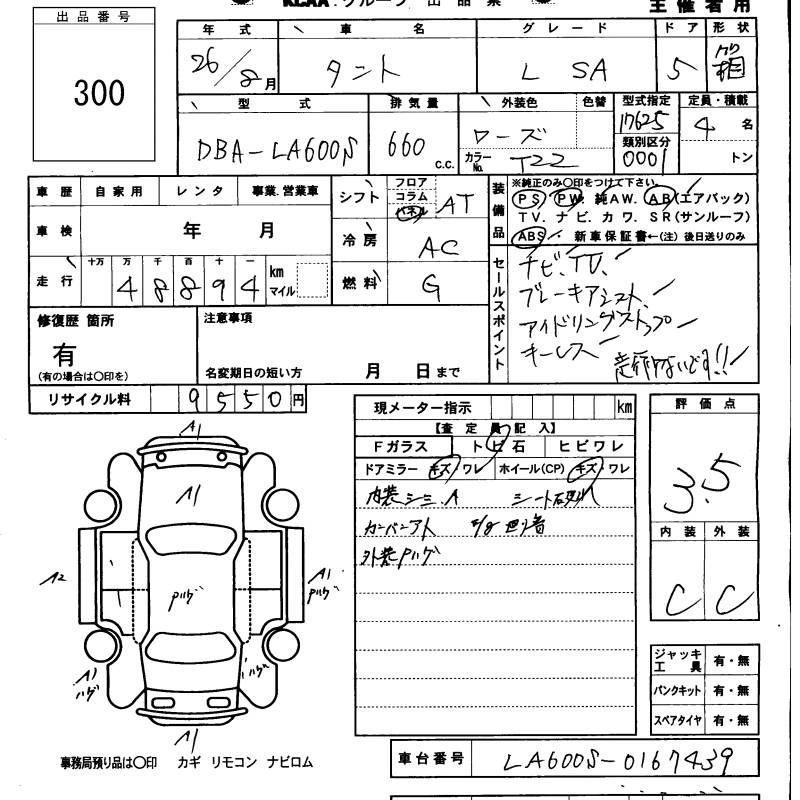 KCAA グループ 出品票
主催者用
出品番号
300
年式 車名 グレード ドア 形状
26/8月 タント L SA 5 箱
型式 排気量 外装色 色替 型式指定 定員・積載
DBA-LA600S 660 c.c. ローズ 17625 4名
カラーNo. T22 類別区分 0001 トン
車歴 自家用 レンタ 事業.営業車
車検 年 月
走行 十万 万 千 百 十 一 km マイル
4 8 8 9 4
シフト フロア コラム パネル AT
冷房 AC
燃料 G
装備品
※純正のみ○印をつけて下さい。
PS PW 純AW. AB(エアバック)
TV. ナビ. カワ. SR(サンルーフ)
ABS 新車保証書←(注)後日送りのみ
セールスポイント
ナビ、TV、
ブレーキアシスト、
アイドリングストップ
キーレス
走行少ないです!!
修復歴 箇所
有
(有の場合は○印を)
注意事項
名変期日の短い方 月 日まで
リサイクル料 9550円
現メーター指示 km
【査定員記入】
Fガラス トビ石 ヒビワレ
ドアミラー キズ/ワレ ホイール(CP) キズ/ワレ
内装シミ.A シート
外装Pハゲ
評価点
3.5
内装 外装
C C
ジャッキ工具 有・無
パンクキット 有・無
スペアタイヤ 有・無
A1
A1
A2
Pハゲ
A1
Pハゲ
A1
ハゲ
ハゲ
A1
事務局預り品は○印 カギ リモコン ナビロム
車台番号 LA600S-0167439